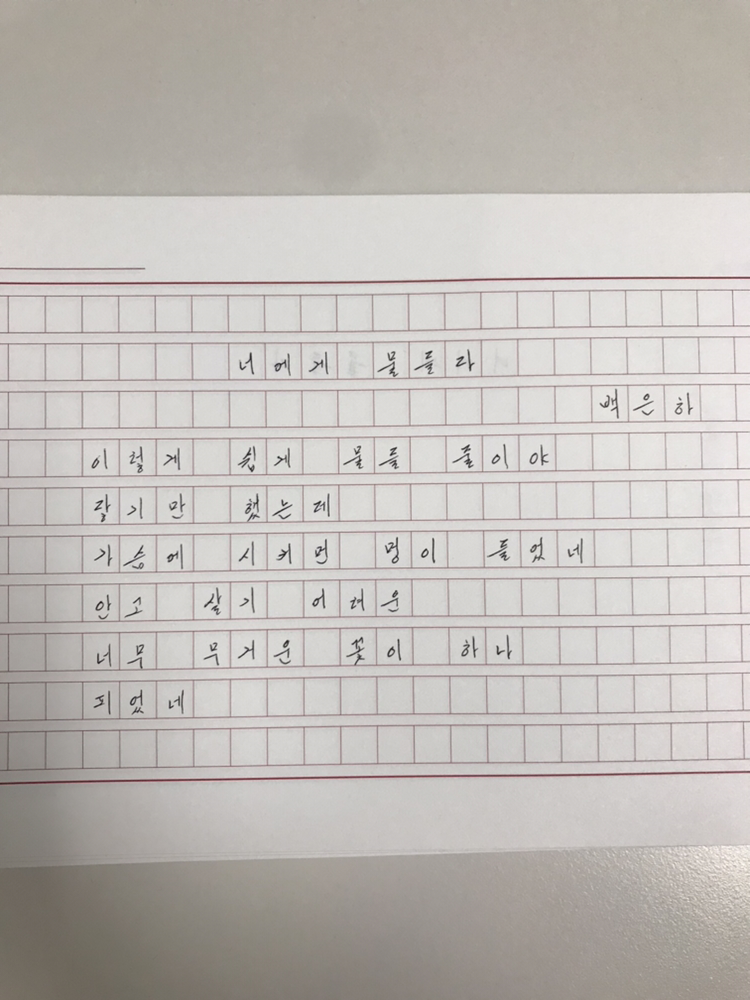 너에게 물들라
백은하
이렇게 쉽게 물들 줄이야
닿기만 했는데
가슴에 시커먼 멍이 들었네
안고 살기 어려운
너무 무거운 꽃이 하나
피었네